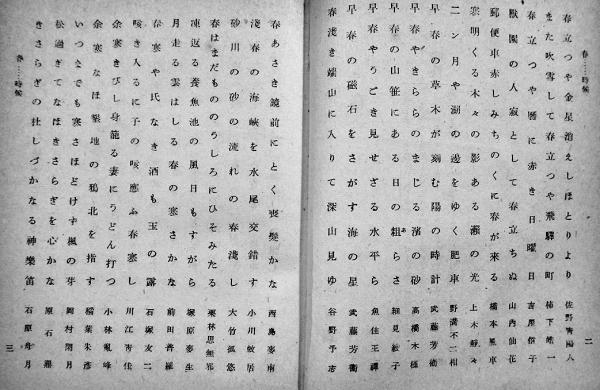 二
春……時候
春立つや金星消えしほとりより 佐野青陽人
また吹雪して春立つや飛驒の町 柿下皓一
春立つや暦に赤き日曜日 吉屋信子
獸園の人寂として春立ちぬ 山內仙花
郵便車赤しみちのくに春が來る 橋本風車
寒明くる木々の影ある瀨の光 上木靜々
二ン月や湖の邊をゆく肥車 野溝不二相
早春の草木が刻む陽の時計 武藤芳衞
早春やきららのまじる濱の砂 高橋木極
早春の山笹にある日の粗らさ 細見綾子
早春やうごき見せざる水平ら 魚住王禪
早春の磁石をさがす海の星 武藤芳衞
春淺き端山に入りて深山見ゆ 谷野予志
春……時候
三
春あさき鏡前にとく喪髮かな 西島麥南
淺春の海峽を水尾交錯す 小川蚊居
砂川の砂の流れの春淺し 大竹孤悠
春はまだもののうしろにひそみたる 栗林思無邪
凍返る養魚池の風日もすがら 塚原麥生
月走る雲はしる春の寒さかな 前田普羅
春寒や氏なき酒も玉の露 石塚友二
咳き入るに子の咳應ふ春寒し 川江秀佳
余寒きびし身籠る妻にうどん打つ 小林颯峰
余寒なほ墾地の鴉北を指す 稲葉朱彥
いつまでも寒さほどけず楓の芽 岡村閑月
松過ぎてなほきさらぎを心かな 原石鼎
きさらぎの杜しづかなる神樂笛 石原舟月